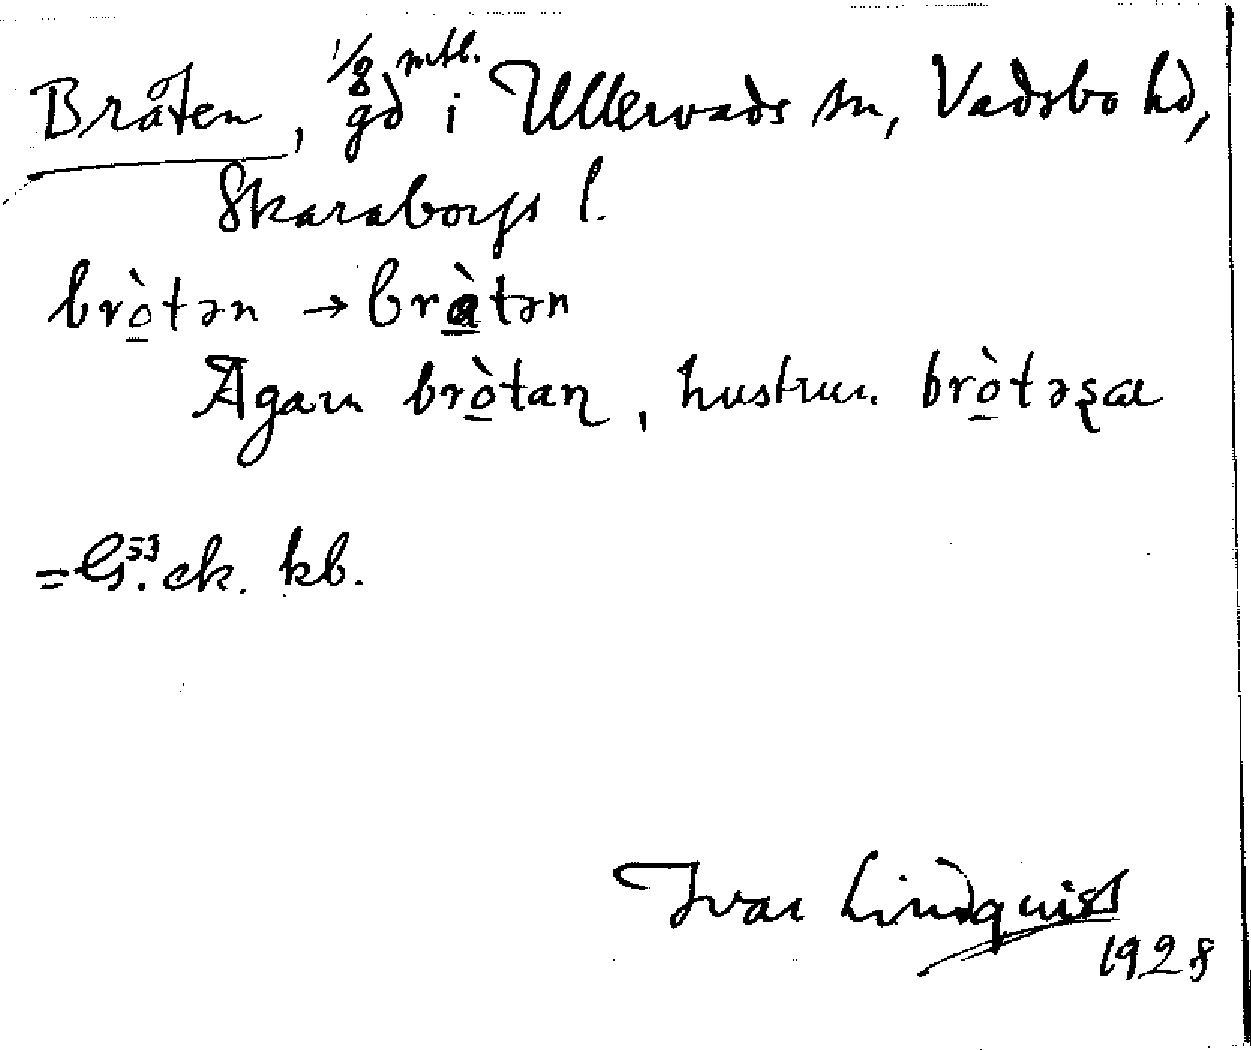 Bråten, 1/8 mtl. gd i Ullervads sn, Vadsbo hd,
Skaraborgs l.
brò̱tən → brà̱tən
Ägarn brò̱taɳ, hustrun brò̱təʂa
= G. 53 ek. kb.
Ivar Lindquist
1928